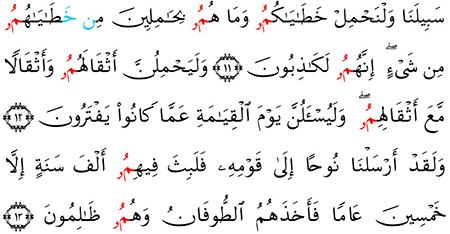 سَبِيلَنَا وَلْنَحْمِلْ خَطَٰيَٰكُمُۥ وَمَا هُمُۥ بِحَٰمِلِينَ مِنْ خَطَٰيَٰهُمُۥ
مِن شَىْءٍۖ إِنَّهُمُۥ لَكَٰذِبُونَ ۝١١ وَلَيَحْمِلُنَّ أَثْقَالَهُمُۥ وَأَثْقَالًا
مَّعَ أَثْقَالِهِمُۥۖ وَلَيُسْـَٔلُنَّ يَوْمَ ٱلْقِيَٰمَةِ عَمَّا كَانُوا۟ يَفْتَرُونَ ۝١٢
وَلَقَدْ أَرْسَلْنَا نُوحًا إِلَىٰ قَوْمِهِۦ فَلَبِثَ فِيهِمُۥ أَلْفَ سَنَةٍ إِلَّا
خَمْسِينَ عَامًا فَأَخَذَهُمُ ٱلطُّوفَانُ وَهُمُۥ ظَٰلِمُونَ ۝١٣